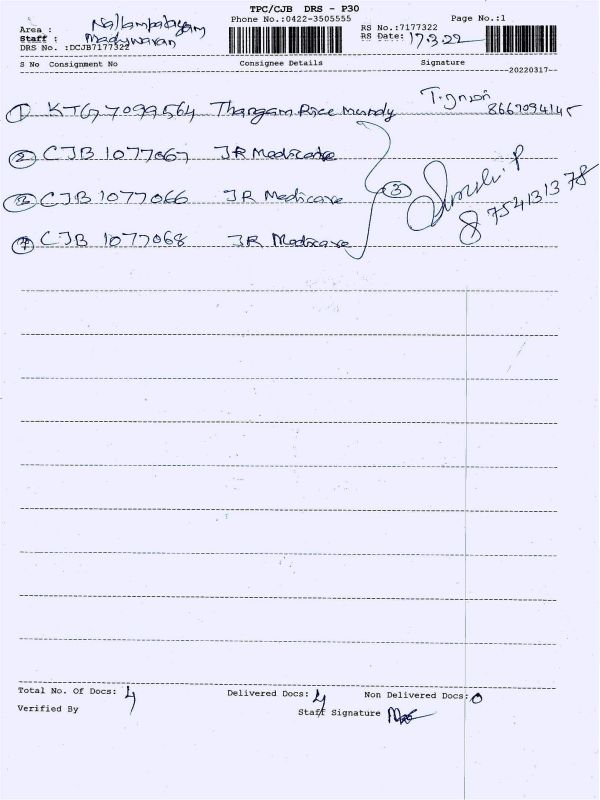 TPC/CJB DRS - P30
Area : Nallampalayam Phone No.:0422-3505555 Page No.:1
Staff : RS No.:7177322
DRS No. :DCJB7177322 RS Date: 17.3.22
S No Consignment No Consignee Details Signature
--20220317--
① KTG 7099564 Thangam Rice Mundy 8667094145
② CJB 1077067 JR Medicare
③ CJB 1077066 JR Medicare ③ 8754131378
④ CJB 1077068 JR Medicare
Total No. Of Docs: 4 Delivered Docs: 4 Non Delivered Docs: 0
Verified By Staff Signature